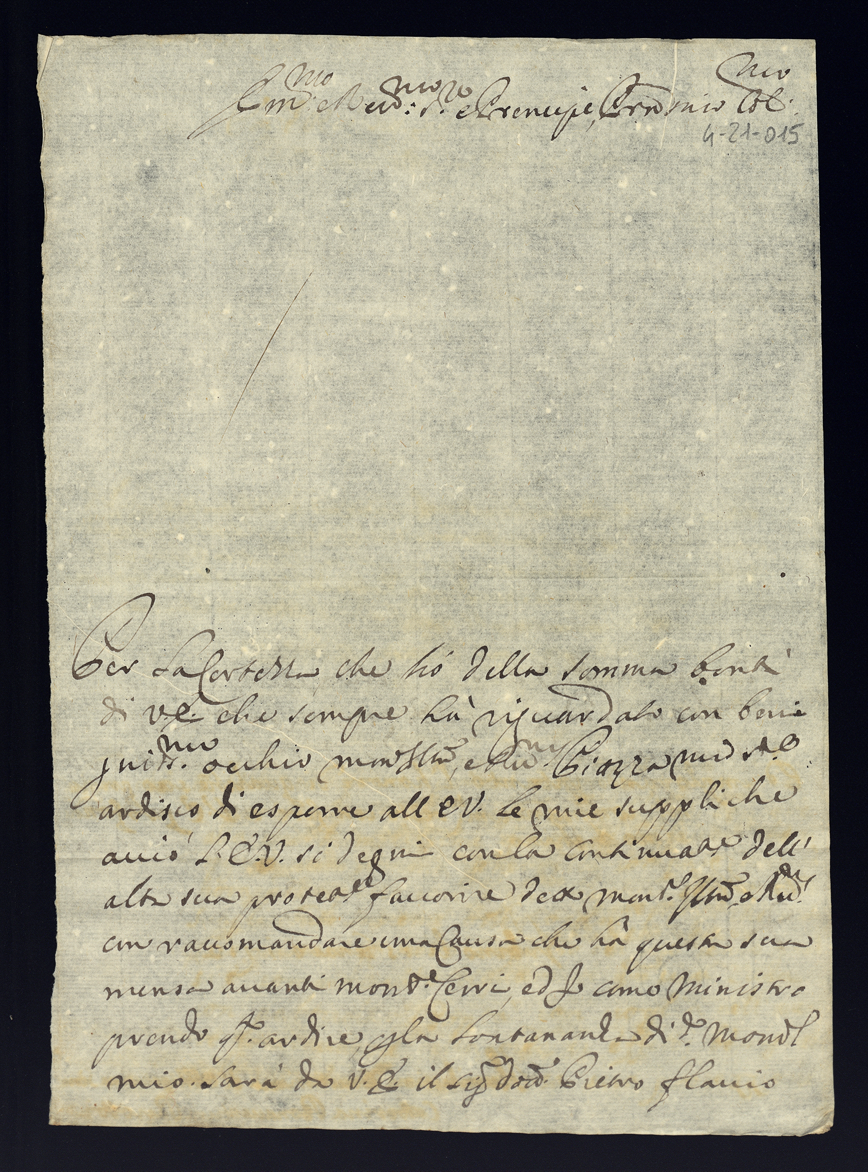 Em.mo e Rev.mo S.re e Prencipe, Pron mio Col.mo
4-21-015
Per la Certezza che hò della somma bontà
di V.E. che sempre hà riguardato con beni
gniss.mo occhio mons.r Ill.mo, e Rev.mo Piazza mio S.re
ardisco di esporre all'E.V. le mie suppliche
acciò L'E.V. si degni con la continuaz.e dell'
alta sua protez.e favorire detto mons.r Ill.mo e Rev.mo
con raccomandare una Causa che hà questa sua
mensa avanti mons.r Cerri, ed Io como Ministro
prendo q.to ardire, p la lontananza di d.o Mons.r
mio. Sarà da V.E. il Sig.r Dott. Pietro flavio